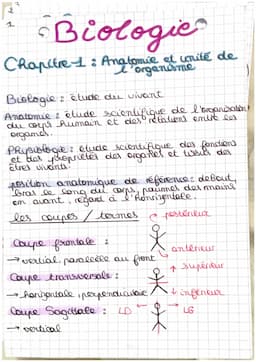 Biologie
Chapitre 1 : Anatomie et unité de
l'organisme
Biologie : étude du vivant
Anatomie : étude scientifique de l'organisation
du corps humain et des relations entre les
organes.
Physiologie : étude scientifique des fonctions
et des propriétés des organes et tissus des
êtres vivants.
position anatomique de référence : debout,
bras le long du corps, paumes des mains
en avant, regard à l'horizontale.
les coupes / termes
postérieur
Coupe frontale :
antérieur
→ vertical, parallèle au front
Coupe transversale :
supérieur
→ horizontale, perpendiculaire
inférieur
Coupe Sagittale :
LD
LG
→ vertical